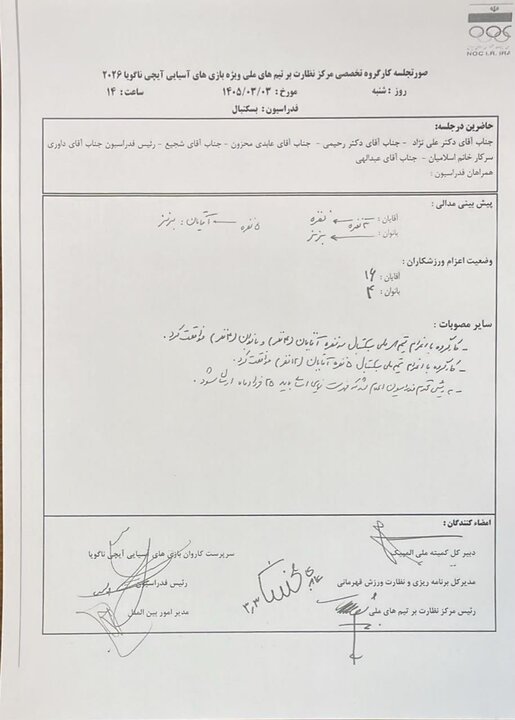 NOC I.R. IRAN
صورتجلسه کارگروه تخصصی مرکز نظارت بر تیم های ملی ویژه بازی های آسیایی آیچی ناگویا ۲۰۲۶
روز : شنبه مورخ : ۱۴۰۵/۰۳/۰۳ ساعت : ۱۴
فدراسیون : بسکتبال
حاضرین درجلسه:
جناب آقای دکتر علی نژاد - جناب آقای دکتر رحیمی - جناب آقای عابدی محزون - جناب آقای شجیع - رئیس فدراسیون جناب آقای داوری
سرکار خانم اسلامیان - جناب آقای عبدالهی
همراهان فدراسیون :
پیش بینی مدالی :
آقایان : ۳ نفره نقره
بانوان : برنز
۵ نفره آقایان : برنز
وضعیت اعزام ورزشکاران :
آقایان : ۱۶
بانوان : ۴
سایر مصوبات :
- کارگروه با اعزام تیم های ملی بسکتبال سه نفره آقایان (۴نفر) و بانوان (۴نفر) موافقت کرد.
- کارگروه با اعزام تیم ملی بسکتبال ۵ نفره آقایان (۱۲نفر) موافقت کرد.
- فدراسیون باید ۲۵ خردادماه ارسال شود.
امضاء کنندگان :
دبیر کل کمیته ملی المپیک
سرپرست کاروان بازی های آسیایی آیچی ناگویا
مدیرکل برنامه ریزی و نظارت ورزش قهرمانی
رئیس فدراسیون
رئیس مرکز نظارت بر تیم های ملی
مدیر امور بین الملل